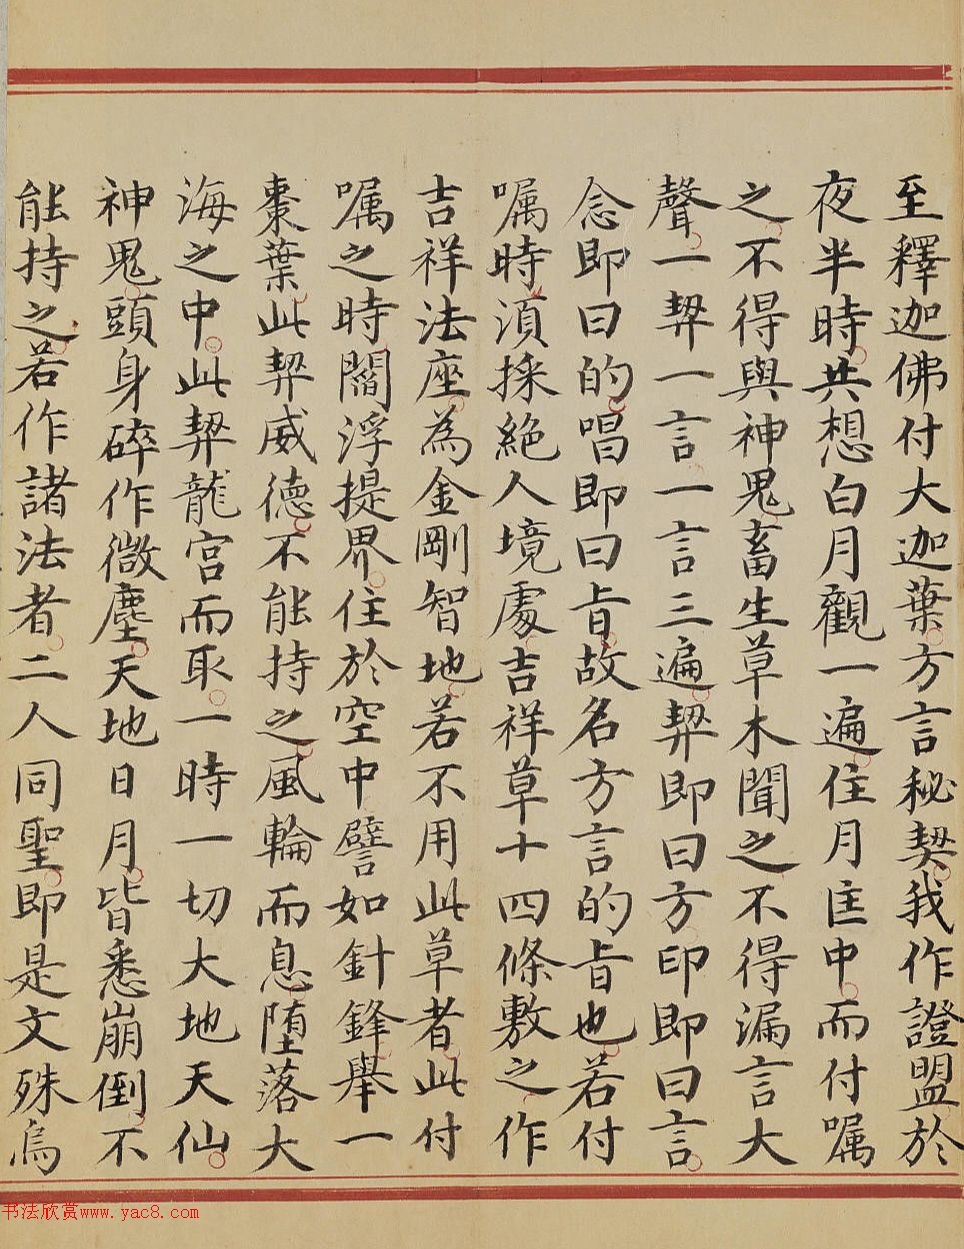 至釋迦佛付大迦葉方言秘契我作證盟於
夜半時共想白月觀一遍住月匡中而付嘱
之不得與神鬼畜生草木聞之不得漏言大
聲一契一言一言三遍契即曰方印即曰言
念即曰的唱即曰旨故名方言的旨也若付
嘱時須採絶人境處吉祥草十四條敷之作
吉祥法座為金剛智地若不用此草者此付
嘱之時閻浮提界住於空中譬如針鋒舉一
棗葉此契威德不能持之風輪而息堕落大
海之中此契龍宮而取一時一切大地天仙
神鬼頭身碎作微塵天地日月皆悉崩倒不
能持之若作諸法者二人同聖即是文殊為
书法欣赏www.yac8.com